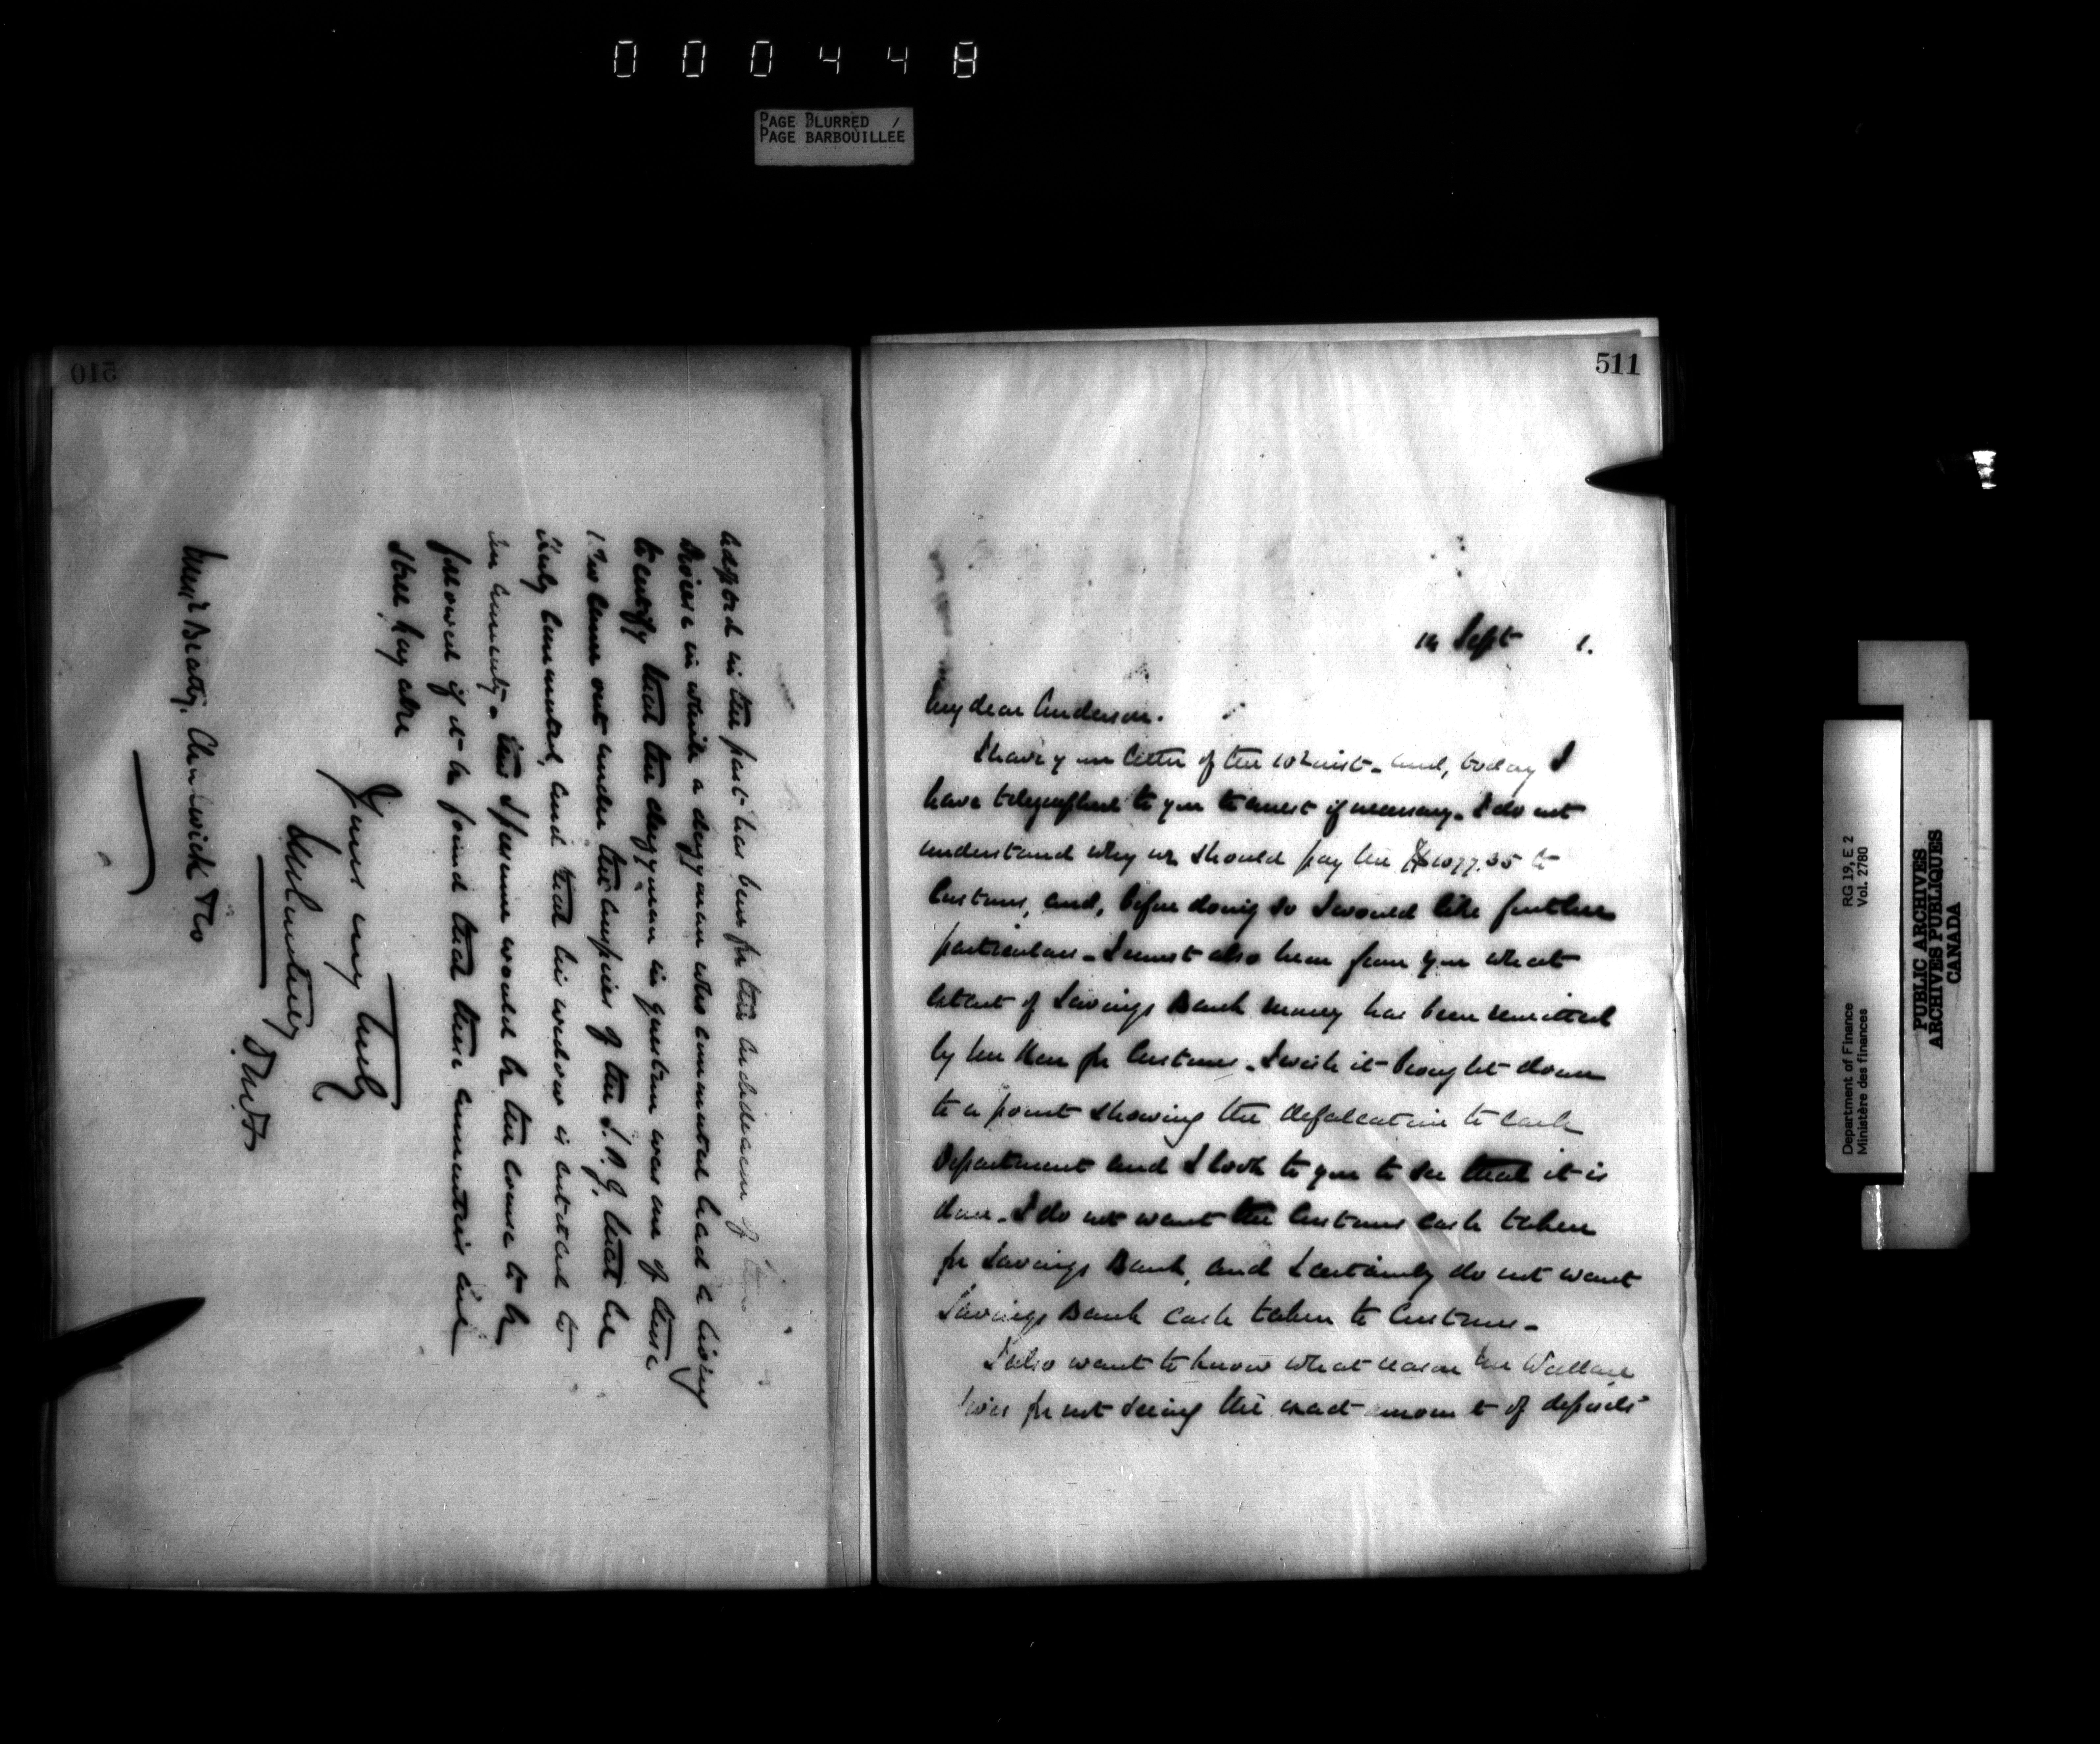 000448
PAGE BLURRED /
PAGE BARBOUILLEE
510
in the past has been for the Archdeacon of
Diocese in which a clergyman who commuted had a living
to certify that the clergyman in question was one of those
who came out under the auspices of the S.P.G. that he
duly commuted, and that his widow is entitled to
an annuity. This I presume would be the course to be
followed if it be found that these annuities are
still payable
Yours very truly
Courtney
D.M.F.
Messrs Beatty, Chadwick & Co
511
14 Sept 1.
My dear Anderson.
I have your letter of the 10th inst. and, today I
have telegraphed to you to arrest if necessary. I do not
understand why we should pay the $1077.35 to
Customs, and, before doing so I would like further
particulars. I must also hear from you what
extent of Savings Bank money has been remitted
by him for Customs. I wish it brought down
to a point showing the defalcation to each
Department and I look to you to see that it is
done. I do not want the Customs cash taken
for Savings Bank, and I certainly do not want
Savings Bank cash taken to Customs.
I also want to know what reason Mr Wallace
gives for not seeing the exact amount of deposits
Department of Finance RG 19, E 2
Ministère des finances Vol. 2780
PUBLIC ARCHIVES
ARCHIVES PUBLIQUES
CANADA